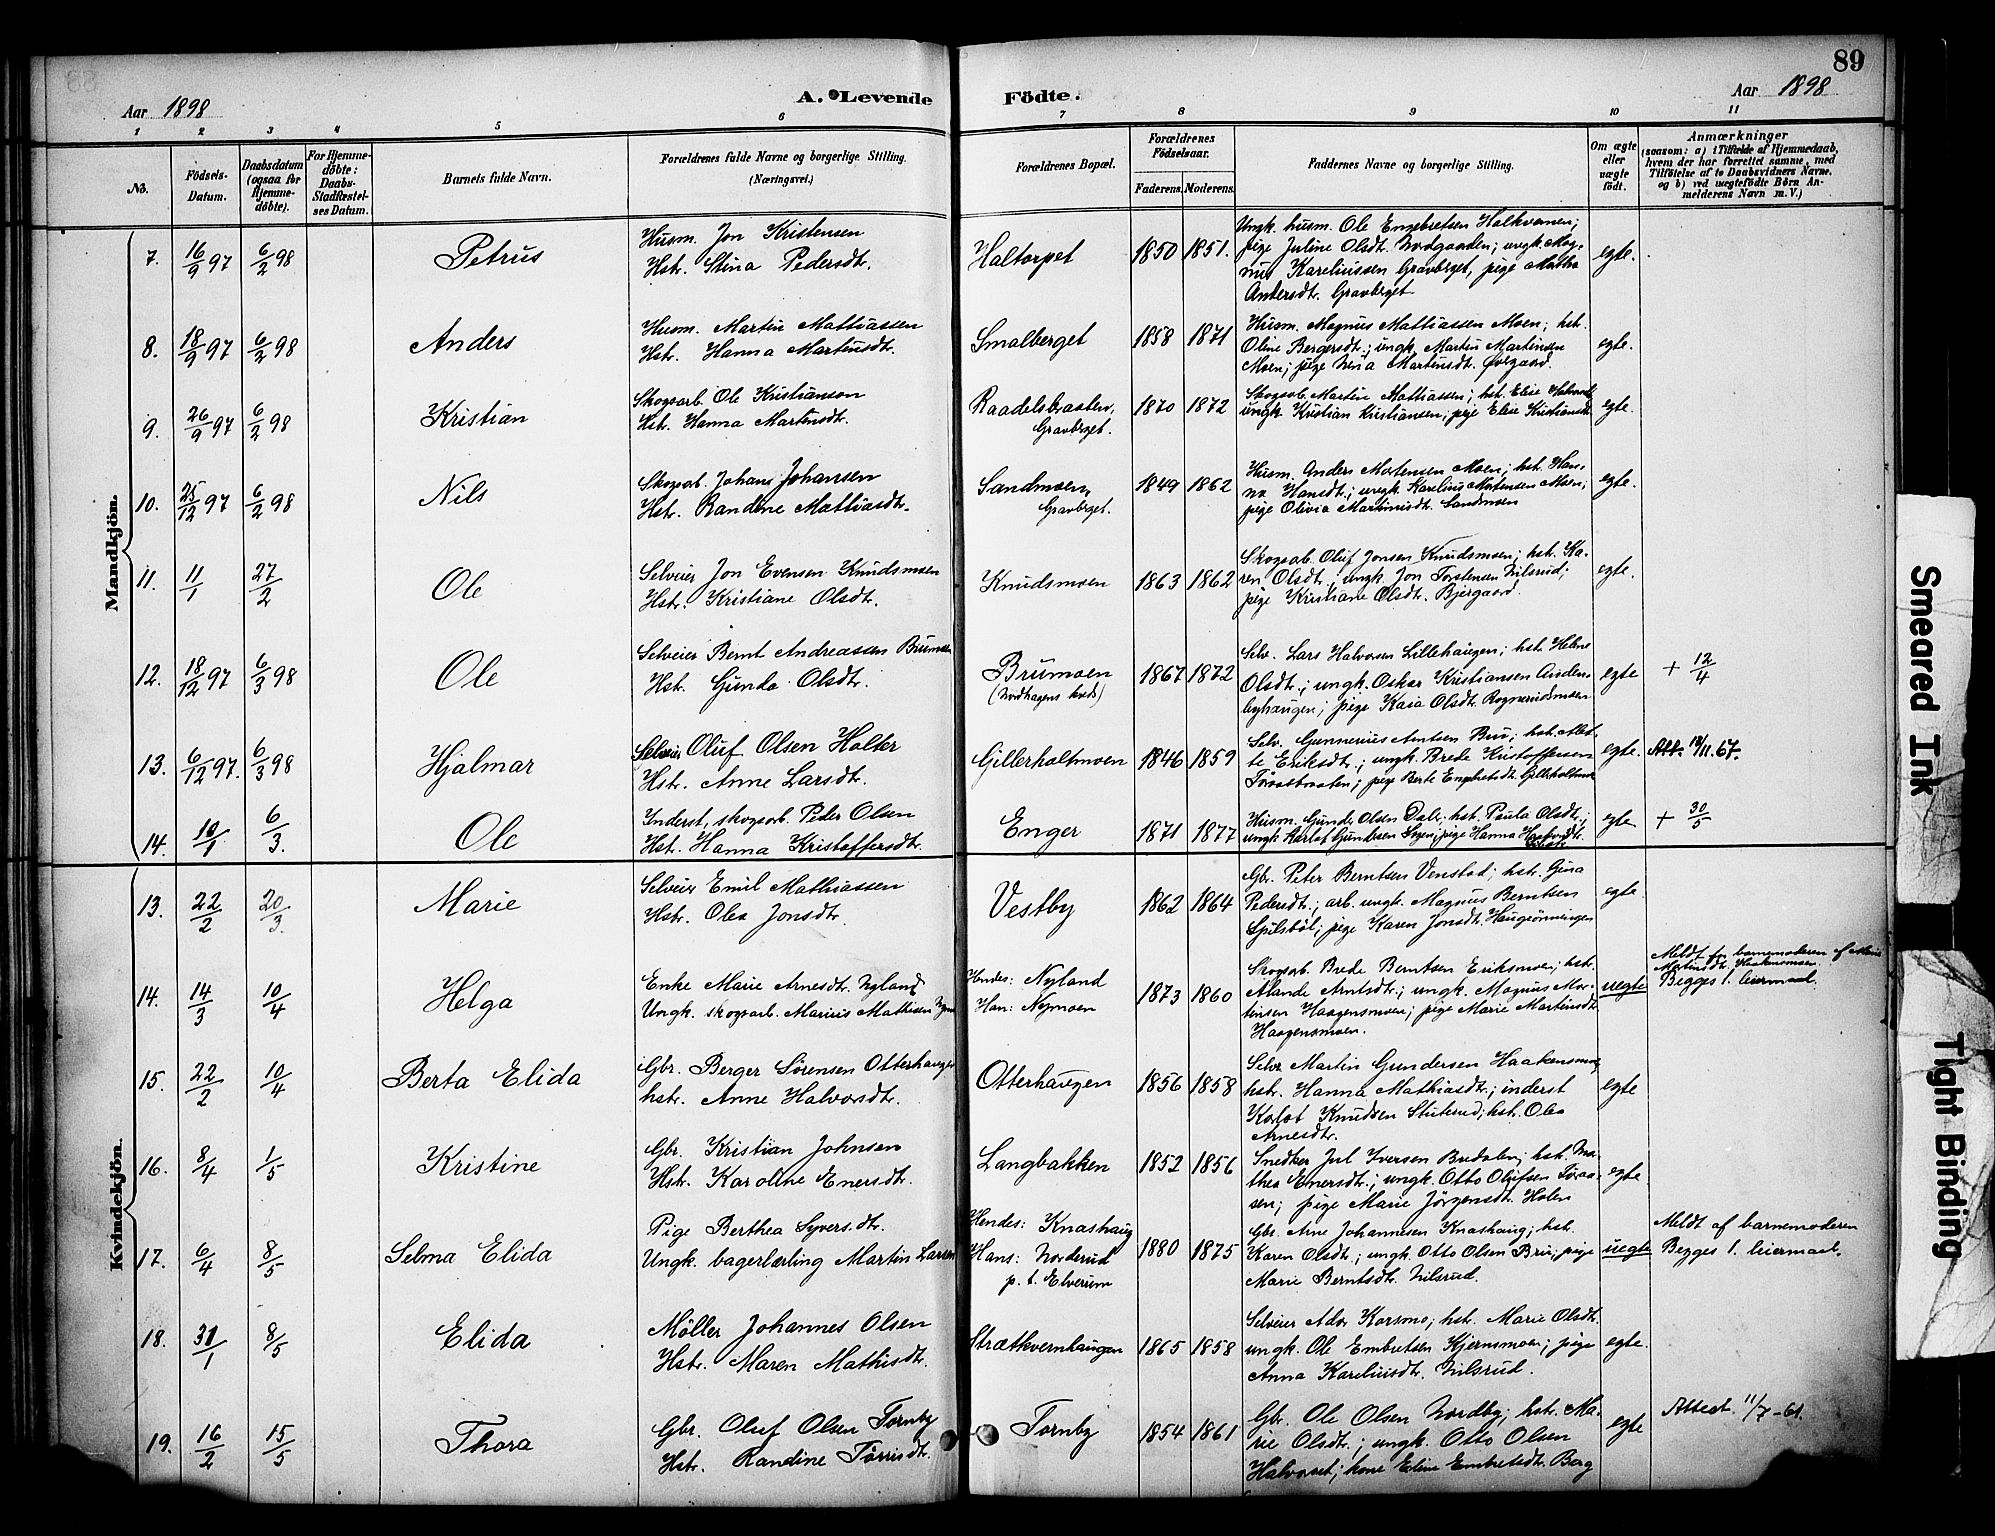 89
Aar 1898
A. Levende
Födte.
Aar 1898
1 2 3 4 5 6 7 8 9 10 11
No.
Födsels-Datum.
Daabsdatum (ogsaa for Hjemme-døbte).
For Hjemme-døbte: Daabs-Stadfæstel-ses Datum.
Barnets fulde Navn.
Forældrenes fulde Navne og borgerlige Stilling.
(Næringsvei.)
Forældrenes Bopæl.
Forældrenes Födselsaar.
Faderens. Moderens.
Faddernes Navne og borgerlige Stilling.
Om ægte eller uægte født.
Anmærkninger
(saasom: a) i Tilfælde af Hjemmedaab, hvem der har forrettet samme, med Tilföielse af to Daabsvidners Navne, og b) ved uægtefödte Börn An-melderens Navn m.V.)
Mandkjön.
7. 16/9 97 6/2 98 Petrus
Husm. Jon Kristensen
Hstr. Stina Pedersdt.
Haltorpet 1850 1851.
Ungk. husm. Ole Engebretsen Halkvernen;
pige Juline Olsdt. Nordgaarden; ungk. Mag-
nus Kareliussen Gravberget, pige Mathea
Andersdt. Gravberget
egte.
8. 18/9 97 6/2 98 Anders
Husm. Martin Mattiassen
Hst. Hanna Martinsdt.
Smalberget 1858 1871
Husm. Magnus Mattiassen Moen; hst.
Oline Bergersdt.; ungk. Martin Martinsen
Moen; pige Martinsdt. Øvergaard.
egte.
9. 26/9 97 6/2 98 Kristian
Skogsarb. Ole Kristianson
Hst. Hanna Martinsdt.
Raadelsbraaten, Gravberget. 1870 1872
Skogsarb. Martin Mattiassen; hst. Elise
ungk. Kristian Kristiansen; pige Elise Kristiansdt.
egte.
10. 25/12 97 6/2 98 Nils
Skogsarb. Johans Johansen
Hst. Randine Mattiasdt.
Sandmoen, Gravberget. 1849 1862
Husm. Anders Mortensen Moen; hst. Han-
na Hansdt.; ungk. Karelius Mortensen Moen;
pige Olivia Martinusdt. Sandmoen
egte.
11. 11/1 27/2 Ole
Selveier Jon Evensen Knudsmoen
Hstr. Kristiane Olsdt.
Knudsmoen 1863 1862
Skogsab. Oluf Jonsen Knudsmoen; hst. Ka-
ren Olsdt.; ungk. Jon Torstensen Nilsrud;
pige Kristiane Olsdt. Bjergaard
egte.
12. 18/12 97 6/3 98 Ole
Selveier Bernt Andreassen Brumoen
Hst. Gunda Olsdt.
Brumoen (Nordhagens kreds) 1867 1872
Selv. Lars Halvorsen Lillehaugen; hst. Helene
Olsdt.; ungk. Oskar Kristiansen Anden-
byhaugen; pige Kaia Olsdt. Rognerudsmoen
egte + 12/4
13. 6/12 97. 6/3 98 Hjalmar
Selveier Oluf Olsen Holter
Hst. Anne Larsdt.
Gjillerholtmoen 1846 1859
Selv. Gunnerius Arntsen Bru; hst. Met-
te Eriksdt.; ungk. Brede Kristoffersen
pige Berte Engebretsdt. Gjillerholtmoen
egte. Att. 13/11. 67.
14. 10/1 6/3. Ole
Inderst, skogsarb. Peder Olsen
Hst. Hanna Kristoffersdt.
Enger 1871 1877
Husm. Gunder Olsen Dale; hst. Paula Olsdt.;
ungk. Karlot Gundersen pige Hanna
egte + 30/5
Kvindekjön.
13. 22/2 20/3. Marie
Selveier Emil Mathiassen
Hst. Olea Jonsdt.
Vestby 1862 1864
Gbr. Peter Berntsen Venstad; hst. Gina
Pedersdt.; arb. ungk. Magnus Berntsen
Spilsböl; pige Karen Jonsdt. Haugrönningen
egte.
14. 14/3 10/4 Helga
Enke Marie Arnesdt. Nyland
Ungk. skogsarb. Marius Mathisen
Hendes: Nyland
Han: Nymoen
1873 1860
Skogsarb. Brede Berntsen Eriksmoen; hst.
Alande Arntsdt.; ungk. Magnus Mar-
tinsen Haagensmoen; pige Marie Martinsdt.
Haagensmoen.
uegte
Meldt for barnemoderen af Marie
Martinsdt. Haakensmoen.
Begges 1. leiermaal.
15. 22/2 10/4 Berta Elida
Gbr. Berger Sörensen Otterhaugen
hstr. Anne Halvorsdt.
Otterhaugen 1856 1858
Selv. Martin Gundersen Haakensmo,
hstr. Hanna Mathiasdt.; inderst
Karlot Knudsen Stuterud; hst. Olea
Arnesdt.
egte
16. 8/4 1/5 Kristine
Gbr. Kristian Johnsen
Hst. Karoline Enersdt.
Langbakken 1852 1856
Snedker Jul Iversen Bredalen; hst. Ma-
thea Enersdt.; ungk. Otto Olufsen Töraa-
sen; pige Marie Jörgensdt. Holen
egte
17. 6/4 8/5 Selma Elida
Pige Berthea Syversdt.
Ungk. bagerlærling Martin Larsen
Hendes: Knashaug
Hans: Norderud
p. t. Elverum
1880 1875
Gbr. Arne Johannesen Knashaug; hst.
Karen Olsdt.; ungk. Otto Olsen Bru; pige
Marie Berntsdt. Nilsrud.
uegte
Meldt af barnemoderen
Begges 1. leiermaal.
18. 31/1 8/5 Elida
Möller Johannes Olsen
Hst. Maren Mathisdt.
Strætkvernhaugen 1865 1858
Selveier Ador Korsmo; hst. Marie Olsdt.
ungk. Ole Embretsen Kjernsmoen; pige
Anna Kareliusdt. Nilsrud.
egte.
19. 16/2 15/5 Thora
Gbr. Oluf Olsen Tornby
Hst. Randine Törrisdt.
Tornby 1854 1861
Gbr. Ole Olsen Nordby; hst. Ma-
rie Olsdt.; ungk. Otto Olsen
Halvorset; kone Eline Embretsdt. Berg
egte
Attest. 11/7-61.
Smeared Ink
Tight Binding